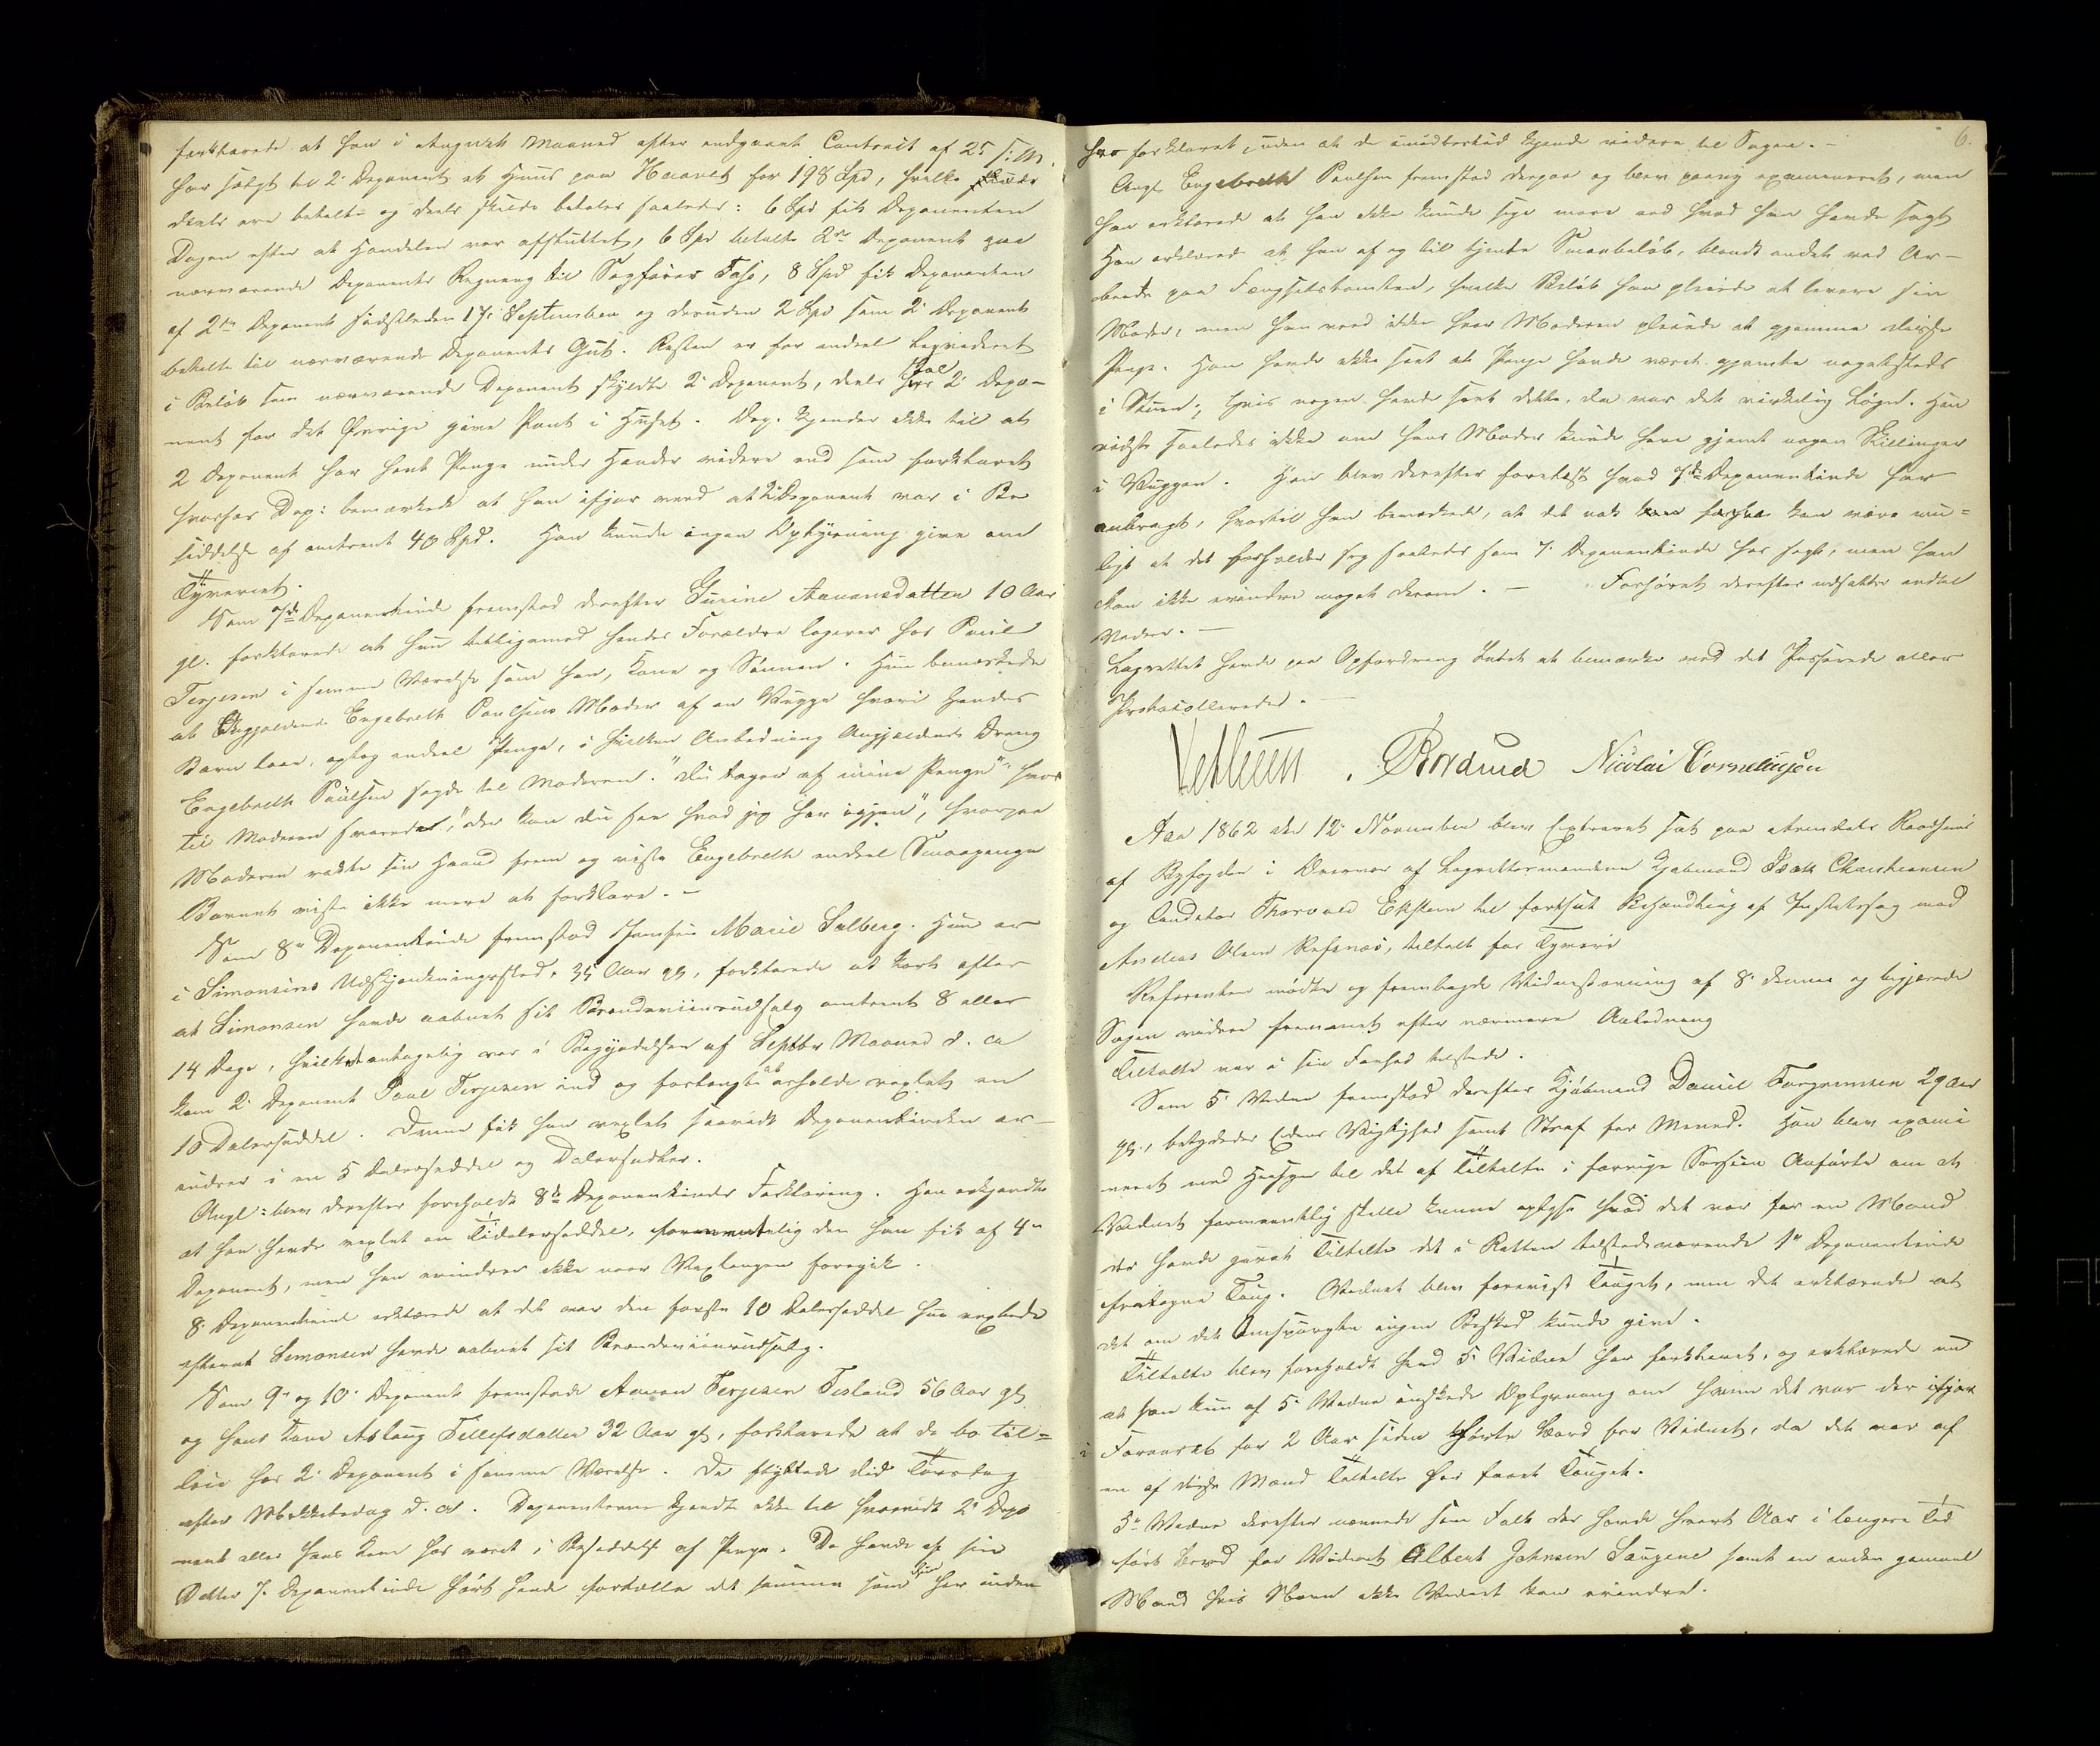 forklarede at han i August Maaned efter indgaaet Contract af 25 s: M.
har solgt til 2' Deponent et Huus paa Haavet for 198 Spd, hvilke
deels ere betalte og deels skulde betales saaledes: 6 Spd fik Deponenten
Dagen efter at Handelen var afsluttet, 6 Spd betalte 2den Deponent paa
nærværende Deponents Regning til Sagfører Fasø, 8 Spd fik Deponenten
af 2den Deponent sidstleden 17' September og desuden 2 Spd som 2' Deponent
betalte til nærværende Deponents Gut. Resten er for endeel liqvideret
i Beløb som nærværende Deponent skyldte 2' Deponent, deels skal 2' Depo-
nent for det Øvrige give Pant i Huset. Dep. kjender ikke til at
2 Deponent har havt Penge under Hænder videre end som forklaret
hvorhos Dep: bemærkede at han ifjor veed at 2' Deponent var i Be
siddelse af omtrent 40 Spd. Han kunde ingen Oplysning give om
Tyveriet.
Som 7de Deponentinde fremstod derefter Gurine Aanonsdatter 10 Aar
gl. forklarede at hun tilligemed hendes Forældre logerer hos Paul
Terjesen i samme Værelse som han, Kone og Sønnen. Hun bemærkede
at Angjældende Engebreth Paulsens Moder af en Vugge hvori hendes
Barn laae, optog endeel Penge, i hvilken Anledning Angjældende Dreng
Engebreth Paulsen sagde til Moderen: "du tager af mine Penge" hvor
til Moderen svarede: "der kan du see hvad jeg har igjen", hvorpaa
Moderen rakte sin Haand frem og viste Engebreth endeel Smaapenge
Barnet viste ikke mere at forklare. -
Som 8de Deponentinde fremstod Jomfru Marie Salberg. Hun er
i Simonsens Udskjænkningssted, 35 Aar gl, forklarede at kort efter
at Simonsen havde aabnet sit Brændeviinsudsalg omtrent 8 eller
14 Dage, hvilket antagelig var i Begyndelsen af Septbr Maaned d. A
kom 2' Deponent Paul Terjesen ind og forlangte at erholde vexlet en
10 Dalerseddel. Denne fik han vexlet saavidt Deponentinden er-
indrer i en 5 Dalerseddel og Dalersedler.
Angl: blev derefter foreholdt 8de Deponentindes Forklaring. Han erkjendte
at han havde vexlet en Tidalerseddel, formentlig den han fik af 4de
Deponent, men han erindrer ikke naar Vexlingen foregik.
8' Deponentinde erklærede at det var den første 10 Dalerseddel hun vexlede
efterat Simonsen havde aabnet sit Brændeviinsudsalg.
Som 9de og 10' Deponent fremstode Aanon Terjesen Fesland 56 Aar gl,
og hans Kone Aslaug Tellefsdatter 32 Aar gl, forklarede at de bo til-
leie hos 2' Deponent i samme Værelse. De flyttede did Torsdag
efter Mikkelsdag d. A. Deponenterne kjendte ikke til hvorvidt 2' Depo
nent eller hans Kone har været i Besiddelse af Penge. De havde af sin
Datter 7' Deponentinde hørt hende fortælle det samme som hun her inden
6.
har forklaret, uden at de imidlertid kjende videre til Sagen. -
Angl Engebreth Paulsen fremstod derpaa og blev paany examineret, men
han erklærede at han ikke kunde sige mere end hvad han havde sagt
Han erklærede at han af og til tjente Smaabeløb, blandt andet ved Ar-
beide paa Fængselstomten, hvilke Beløb han pleiede at levere sin
Moder, men han veed ikke hvor Moderen pleiede at gjemme disse
Penge. Han havde ikke seet at Penge havde været gjemte nogetsteds
i Stuen; hvis nogen havde seet dette, da var det virkelig Løgn. Han
vidste saaledes ikke om hans Moder kunde have gjemt nogen Skillinger
i Vuggen. Han blev derefter forelæst hvad 7de Deponentinde har
anbragt, hvortil han bemærkede, at det nok kan være mu-
ligt at det forholder sig saaledes som 7' Deponentinde har sagt, men han
kan ikke erindre noget derom. - Forhøret derefter udsattes indtil
Videre. -
Lagrettet havde paa Opfordring Intet at bemærke ved det Passerede eller
Protocollerede. -
Nicolai Cornelius̄en
Aar 1862 den 12' November blev Extraret sat paa Arendals Raadhuus
af Byfogden i Overvær af Lagrettesmændene Kjøbmand Isak Christiansen
og Conditor Thorvald Ekstrøm til fortsat Behandling af Justitssag mod
Andreas Olsen Refsnæs, tiltalt for Tyveri
Referenten mødte og fremlagde Vidnestævning af 8' dennes og begjærede
Sagen videre fremmet efter nærmere Anledning
Tiltalte var i sin Forhør tilstede.
Som 5' Vidne fremstod derefter Kjøbmand Daniel Torgrimsen 29 Aar
gl., betydedes Edens Vigtighed samt Straf for Meened. Han blev exami
neret med Hensyn til det af Tiltalte i forrige Session Anførte om at
Vidnet formeentlig skulle kunne oplyse hvad det var for en Mand
der havde givet Tiltalte det i Retten tilstedeværende 1ste Deponentinde
fratagne Toug. Vidnet blev foreviist Touget, men det erklærede at
det om det Omspurgte ingen Besked kunde give.
Tiltalte blev foreholdt hvad 5' Vidne har forklaret, og erklærede nu
at han kun af 5' Vidne ønskede Oplysning om hvem det var der ifjor
i Foraaret for 2 Aar siden førte Baad for Vidnet, da det var af
en af disse Mænd Tiltalte har faaet Touget.
5te Vidne derefter nævnede som Folk der havde hvert Aar i længere Tid
ført Baad for Vidnet Albert Johnsen Saugene samt en anden gammel
Mand hvis Navn ikke Vidnet kan erindre.